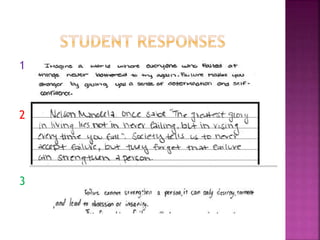 STUDENT RESPONSES
1
Imagine a world where everyone who failed at
things never bothered to try again. Failure makes you
stronger by giving you a sense of determination and self-
confidence.
2
Nelson Mandela once said "The greatest glory
in living lies not in never failing, but in rising
every time you fall". Society tells us to never
accept failure, but they forget that failure
can strengthen a person.
3
failure cannot strengthen a person, it can only destroy, torment
, and lead to obsession or insanity.